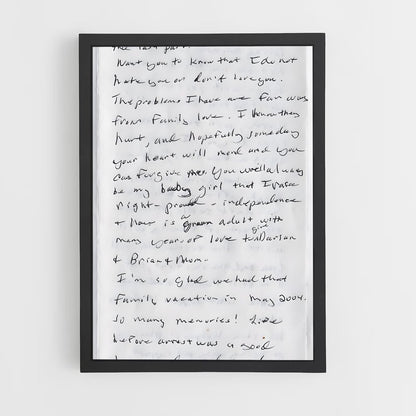 the last part.
Want you to know that I do not
hate you or don't love you.
The problems I have are far away
from family love. I know they
hurt, and hopefully someday
your heart will mend and you
can forgive me. You will always
be my baby girl that I raise
right - proud - independence
+ now is a grown adult with
many years of love to give Darian
& Brian & Mom.
I'm so glad we had that
family vacation in May 2004.
So many memories! Life
before arrest was a good